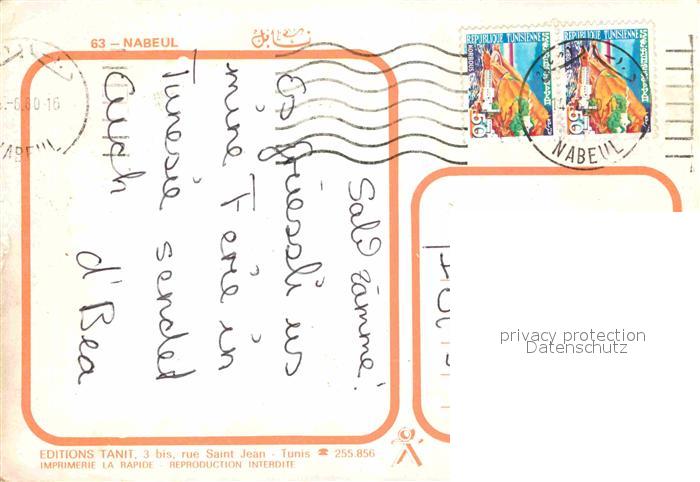 63 – NABEUL
نابل
REPUBLIQUE TUNISIENNE
50
REPUBLIQUE TUNISIENNE
50
NABEUL
-8.80-16
NABEUL
Salü zämme!
Es Grüessli us
mine Ferie in
Tunesie sendet
Euch d'Bea
privacy protection
Datenschutz
EDITIONS TANIT, 3 bis, rue Saint Jean - Tunis ☎ 255.856
IMPRIMERIE LA RAPIDE - REPRODUCTION INTERDITE